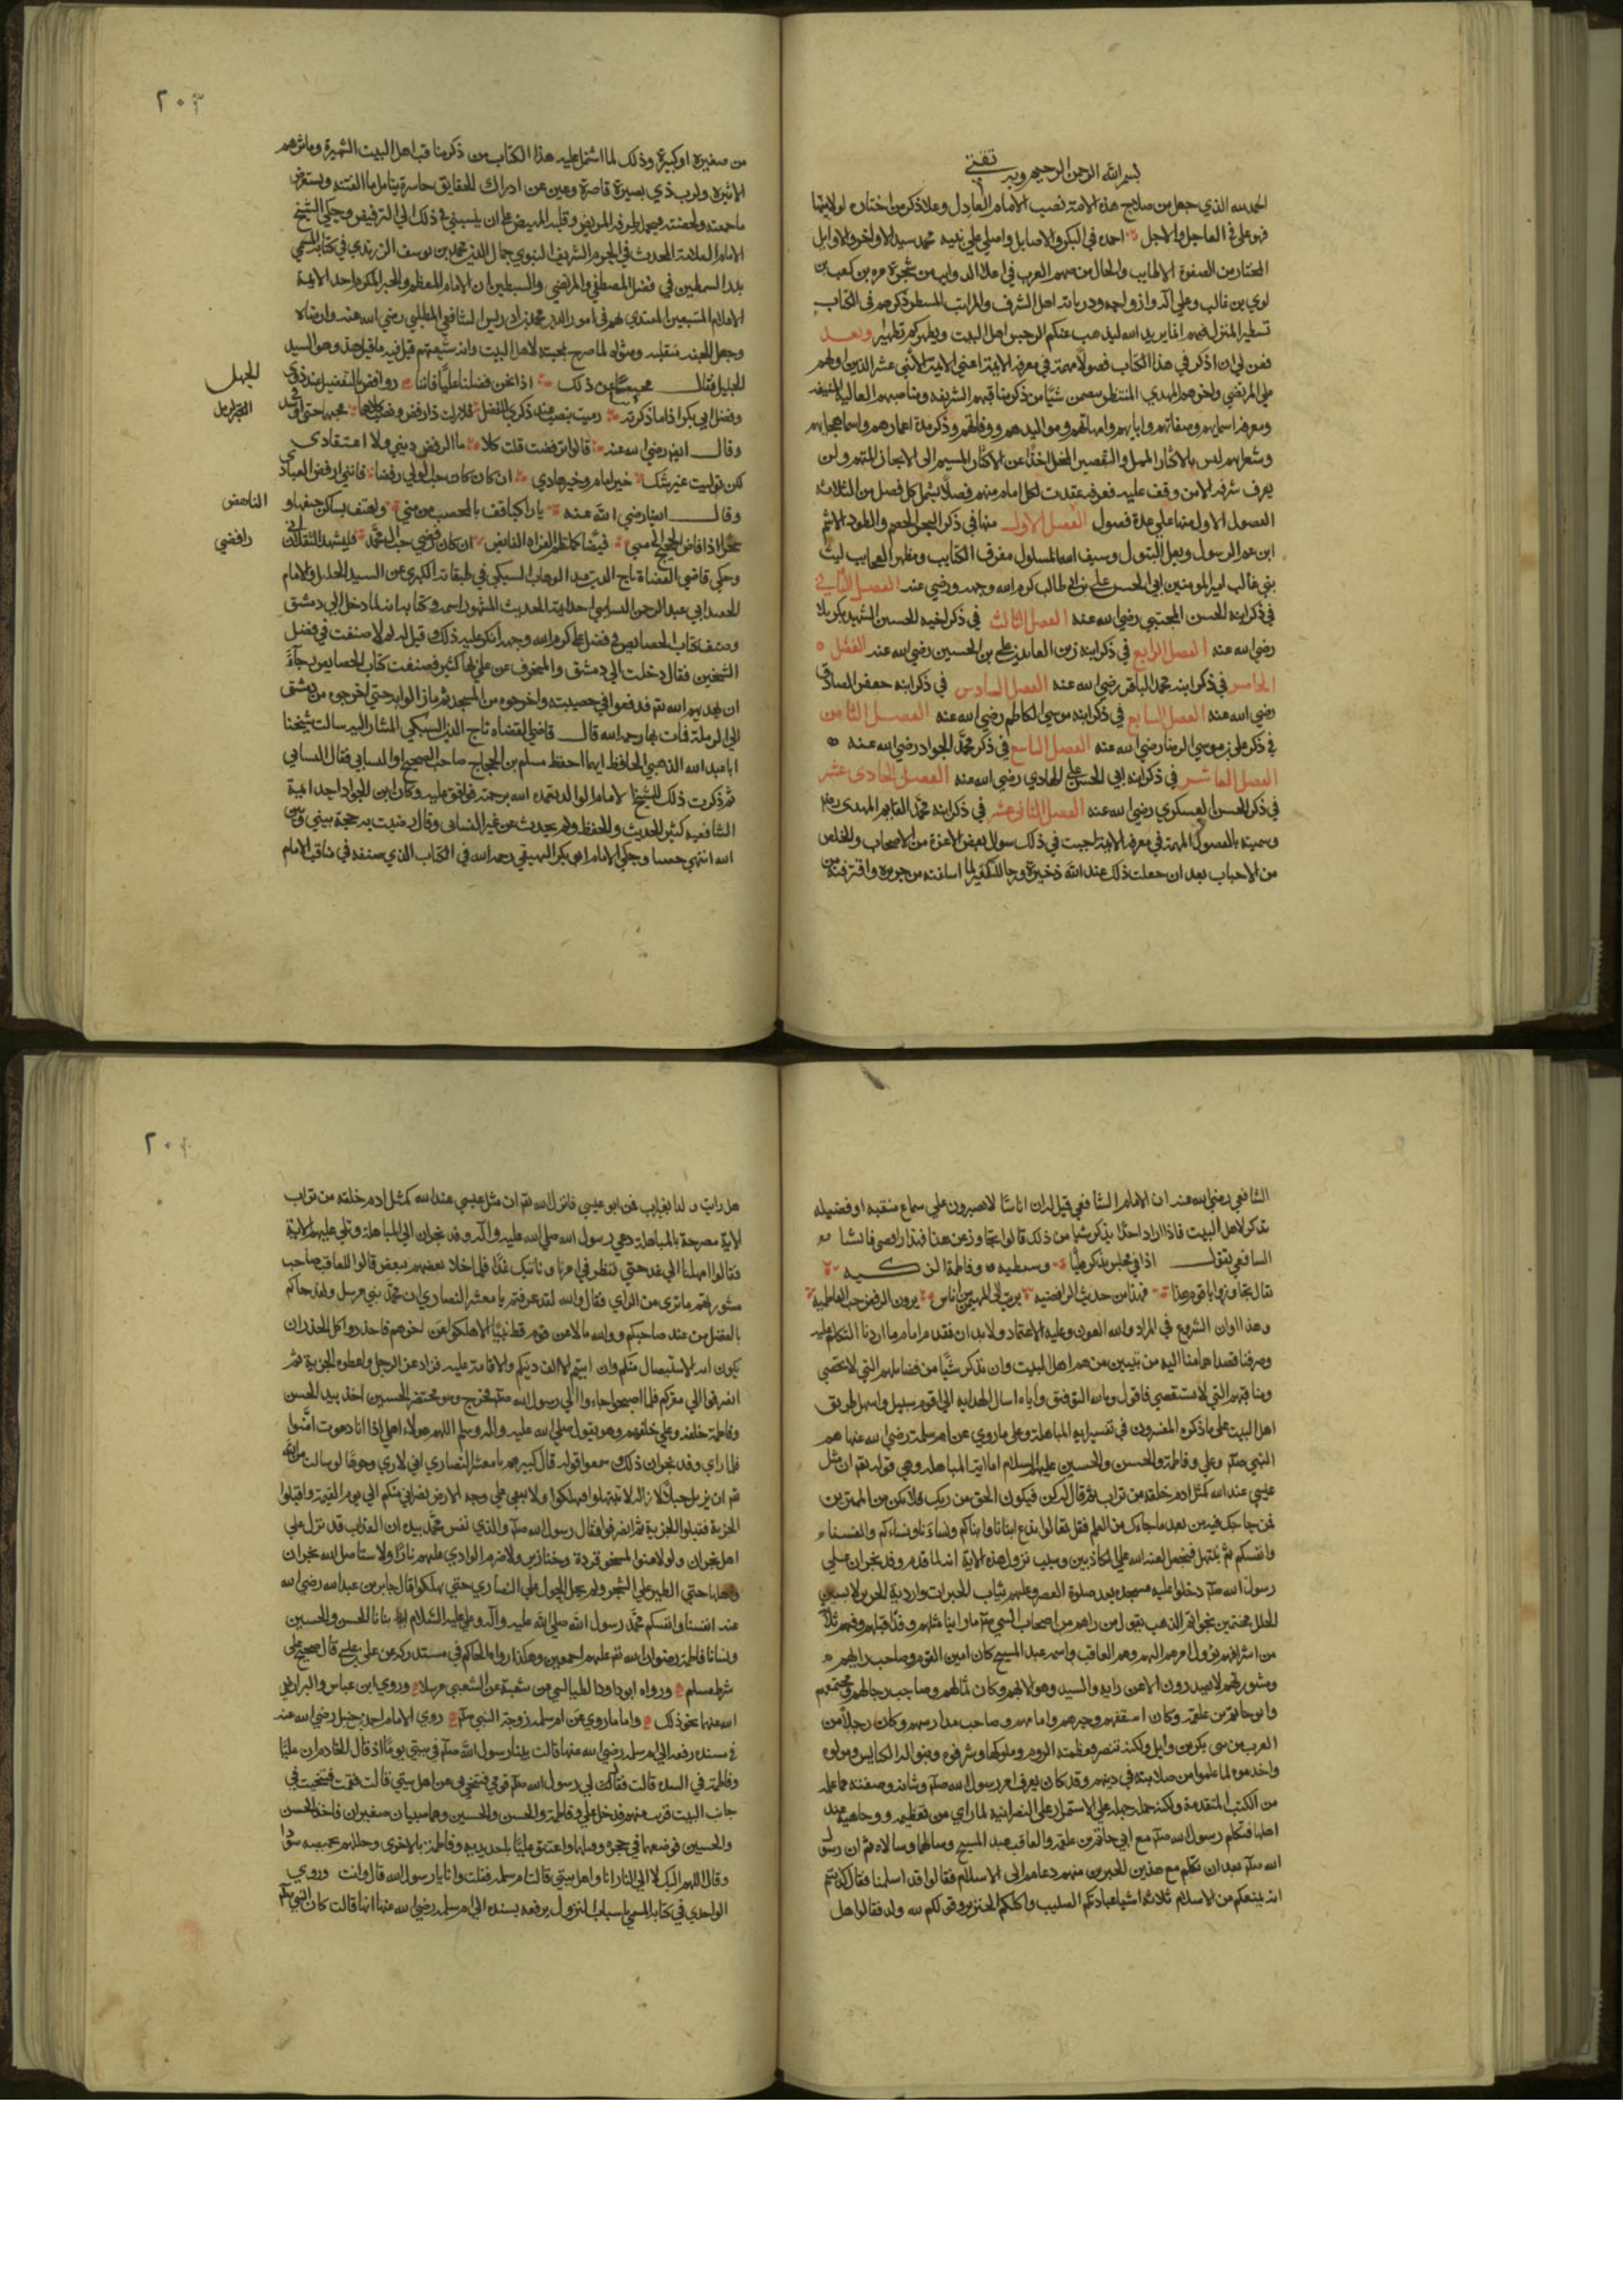 بسم الله الرحمن الرحيم وبه ثقتي
الحمد لله الذي جعل من صلاح هذه الامة نصب الامام العادل وعلا ذكر من اختاره لولايتها
فهو علي في العاجل والاجل احمده في البكور والاصايل واصلي علي نبيه محمد سيد الاواخر والاوايل
المختار من الصفوة الاطايب والحال من صميم العرب في اعلا الذوايب من شجرة مره بن كعب بن
لوي بن غالب وعلي آله وازواجه وذرياته اهل الشرف والمراتب المسطر ذكرهم في الكتاب
تسطيرا المنزل فيهم انما يريد الله ليذهب عنكم الرجس اهل البيت ويطهركم تطهيرا وبعد
فعن لي ان اذكر في هذا الكتاب فصولا مهمة في معرفة الايمة اعني الايمة الاثني عشر الذين اولهم
علي المرتضي واخرهم المهدي المنتظر يتضمن شيئا من ذكر مناقبهم الشريفه ومناصبهم العالية المنيفه
ومعرفة اسمايهم وصفاتهم وابايهم وامهاتهم ومواليدهم ووفاتهم وذكر مدة اعمارهم واسما حجابهم
وشعرايهم ليس بالاكثار الممل والتقصير المخل اخذا عن الاكثار المسيم الي الايجاز المفهم ولن
يعرف شرفه الا من وقف عليه فعرفه عقدت لكل امام منهم فصلا يشتمل كل فصل من الثلاثة
الفصول الاول منها علي عدة فصول الفصل الاول منها في ذكر البحر الخضم والطود الاشم
ابن عم الرسول وبعل البتول وسيف الله المسلول مفرق الكتايب ومظهر العجايب ليث
بني غالب امير المومنين ابي الحسن علي بن ابي طالب كرم الله وجهه ورضي عنه الفصل الثاني
في ذكر ابنه الحسن المجتبي رضي الله عنه الفصل الثالث في ذكر اخيه الحسين الشهيد بكربلا
رضي الله عنه الفصل الرابع في ذكر ابنه زين العابدين علي بن الحسين رضي الله عنه الفصل
الخامس في ذكر ابنه محمد الباقر رضي الله عنه الفصل السادس في ذكر ابنه جعفر الصادق
رضي الله عنه الفصل السابع في ذكر ابنه موسي الكاظم رضي الله عنه الفصل الثامن
في ذكر علي بن موسي الرضا رضي الله عنه الفصل التاسع في ذكر محمد الجواد رضي الله عنه
الفصل العاشر في ذكر ابنه ابي الحسن علي الهادي رضي الله عنه الفصل الحادي عشر
في ذكر الحسن العسكري رضي الله عنه الفصل الثاني عشر في ذكر ابنه محمد القايم المهدي
وسميته بالفصول المهمة في معرفة الايمة اجبت في ذلك سوال بعض الاعزة من الاصحاب والخلص
من الاحباب بعد ان جعلت ذلك عند الله ذخيرة ورجا للتكفير لما اسلفته من جريرة واقترفته
٢٠٣
من صغيرة او كبيرة وذلك لما اشتمل عليه هذا الكتاب من ذكر مناقب اهل البيت الشهيرة وماثرهم
الاثيرة ولرب ذي بصيرة قاصرة وعين عن ادراك الحقايق حاسرة يتامل ما الفته ويستعرض
ما جمعته ولخصته فيحمله طرفه المريض وقلبه المهيض علي ان ينسبني في ذلك الي الترفيض وحكي الشيخ
الامام العلامة المحدث في الحرم الشريف النبوي جمال الدين محمد بن يوسف الزرندي في كتابه المسمي
بدر السمطين في فضل المصطفي والمرتضي والسبطين ان الامام المعظم والحبر المكرم احد الايمة
الاعلام المتبعين المقتدي بهم في امور الدين محمد بن ادريس الشافعي المطلبي رضي الله عنه وارضاه
وجعل الجنة منقلبه ومثواه لما صرح بمحبته لاهل البيت وانه من شيعتهم قيل فيه ما قيل وهو السيد
الجليل فقال مجيبا عن ذلك اذا نحن فضلنا عليا فاننا روافض بالتفضيل عند ذوي
الجهل
وفضل ابي بكر اذا ما ذكرته رميت بنصب عند ذكري للفضل فلا زلت ذا رفض ونصب كلاهما بحبهما حتي
وقال ايضا رضي الله عنه قالوا ترفضت قلت كلا ما الرفض ديني ولا اعتقادي
لكن توليت غير شك خير امام وخير هادي ان كان حب الولي رفضا فانني ارفض العباد
وقال ايضا رضي الله عنه يا راكبا قف بالمحصب من مني واهتف بساكن خيفها و
الناهض
سحرا اذا فاض الحجيج الي مني فيضا كملتطم الفرات الفايض ان كان رفضي حب ال محمد فليشهد الثقلان اني
رافضي
وحكي قاضي القضاة تاج الدين عبد الوهاب السبكي في طبقاته الكبري عن السيد الجليل والامام
ابي عبد الرحمن النسايي احد ايمة الحديث المشهور اسمه وكتابه انه لما دخل الي دمشق
وصنف كتاب الخصايص في فضل علي كرم الله وجهه انكر عليه ذلك وقيل له لم لا صنفت في فضل
الشيخين فقال دخلت الي دمشق والمنحرف عن علي بها كثير فصنفت كتاب الخصايص رجاء
ان يهديهم الله فدفعوا في خصيتيه واخرجوه من المسجد ثم ما زالوا به حتي اخرجوه من دمشق
الي الرملة فمات بها رحمه الله قال قاضي القضاه تاج الدين السبكي المشار اليه سالت شيخنا
ابا عبد الله الذهبي الحافظ ايهما احفظ مسلم بن الحجاج صاحب الصحيح او النسايي فقال النسايي
ثم ذكرت ذلك للشيخ الامام الوالد تغمده الله برحمته فوافق عليه وكان ابن الحداد احد ايمة
الشافعيه كثير الحديث والحفظ ولم يحدث عن غير النسائي وقال رضيت به حجة بيني وبين
الله انتهي وحكي الامام ابو بكر البيهقي رحمه الله في الكتاب الذي صنفه في مناقب الامام
الشافعي رضي الله عنه ان الامام الشافعي قيل له ان اناسا لا يصبرون علي سماع منقبه او فضيله
تذكر لاهل البيت فاذا اراد احد يذكر شيا من ذلك قالوا تجاوز عن هذا فهذا رافضي فانشا
الشافعي يقول اذا في مجلس ذكروا عليا وسبطيه وفاطمة الزكيه
يقال تجاوزوا يا قوم هذا فهذا من حديث الرافضيه برئت الي المهيمن من اناس يرون الرفض حب الفاطميه
وهذا اوان الشروع في المراد والله العون وعليه الاعتماد ولابد ان نقدم امام ما اردنا التكلم عليه
وصرفنا قصد اهتمامنا اليه من تبيين من هم اهل البيت وان نذكر شيئا من فضايلهم التي لا تحصي
ومناقبهم التي لا تستقصي فاقول وبالله التوفيق واياه اسال الهدايه الي اقوم سبيل واسهل طريق
اهل البيت علي ما ذكره المفسرون في تفسير اية المباهلة وعلي ما روي عن ام سلمة رضي الله عنها هم
النبي صلم وعلي وفاطمة والحسن والحسين عليهم السلام اما اية المباهله وهي قوله تعم ان مثل
عيسي عند الله كمثل ادم خلقه من تراب ثم قال له كن فيكون الحق من ربك فلا تكن من الممترين
فمن حاجك فيه من بعد ما جاءك من العلم فقل تعالوا ندع ابناءنا وابناكم ونساءنا ونساءكم وانفسنا
وانفسكم ثم نبتهل فنجعل لعنة الله علي الكاذبين وسبب نزول هذه الاية انه لما قدم وفد نجران علي
رسول الله صلم دخلوا عليه مسجده بعد صلوة العصر وعليهم ثياب الحبرات واردية الحرير لابسين
الحلل مختمين بخواتم الذهب يقول من راهم من اصحاب النبي صلم ما راينا مثلهم وفدا قبلهم وفيهم ثلاثة
من اشرافهم يؤول امرهم اليهم وهم العاقب واسمه عبد المسيح كان امين القوم وصاحب رايهم
ومشورتهم لا يصدرون الا عن رايه والسيد وهو الايهم وكان ثمالهم وصاحب رحالهم ومجتمعهم
وابو حاتم بن علقمة وكان اسقفهم وحبرهم وامامهم وصاحب مدارسهم وكان رجلا من
العرب من بني بكر بن وايل ولكنه تنصر فعظمته الروم وملوكها وشرفوه وبنوا له الكنايس ومولوه
واخدموه لما علموا من صلابته في دينهم وقد كان يعرف امر رسول الله صلم وشانه وصفته مما علمه
من الكتب المتقدمة ولكنه حمله جهله علي الاستمرار علي النصرانية لما راي من تعظيمه ووجاهته عند
اهلها فتكلم رسول الله صلم مع ابي حاتم بن علقمة والعاقب عبد المسيح وسالهما وسالاه ثم ان رسول
الله صلم بعد ان تكلم مع هذين الحبرين منهم دعاهم الي الاسلام فقالوا قد اسلمنا فقال كذبتم
انه يمنعكم من الاسلام ثلاثة اشيا عبادتكم الصليب واكلكم الخنزير وقولكم لله ولد فقالوا هل
٢٠٤
هل رايت ولدا بغير اب فمن ابو عيسي فانزل الله تعم ان مثل عيسي عند الله كمثل ادم خلقه من تراب
الاية مصرحة بالمباهلة دعي رسول الله صلي الله عليه وآله وفد نجران الي المباهلة وتلي عليهم الاية
فقالوا امهلنا الي غد حتي ننظر في امرنا ونأتيك غدا فلما خلا بعضهم ببعض قالوا للعاقب صاحب
مشورتهم ما تري من الراي فقال والله لقد عرفتم يا معشر النصاري ان محمد نبي مرسل ولقد جاكم
بالفصل من عند صاحبكم ووالله ما لاعن قوم قط نبيا الا هلكوا عن اخرهم فاحذروا كل الحذر ان
يكون افة الاستيصال منكم وان ابيتم الا الف دينكم والاقامة عليه فوادعوا الرجل واعطوه الجزية ثم
انصرفوا الي مقركم فلما اصبحوا جاءوا الي رسول الله صلم فخرج وهو محتضن الحسين اخذ بيد الحسن
وفاطمة خلفه وعلي خلفهم وهو يقول صلي الله عليه واله وسلم اللهم هولاء اهلي اذا انا دعوت امنوا
فلما راي وفد نجران ذلك وسمعوا قوله قال كبيرهم يا معشر النصاري اني لاري وجوها لو سالت الله
تعم ان يزيل جبلا لازاله لا تبتهلوا فتهلكوا ولا يبقي علي وجه الارض نصراني منكم الي يوم القيمة واقبلوا
الجزية فقبلوا الجزية ثم انصرفوا فقال رسول الله صلم والذي نفس محمد بيده ان العذاب قد نزل علي
اهل نجران ولو لاعنوا لمسخوا قردة وخنازير ولاضرم الوادي عليهم نارا ولاستاصل الله نجران
واهلها حتي الطير علي الشجر ولم يحل الحول علي النصاري حتي يهلكوا قال جابر بن عبد الله رضي الله
عنه انفسنا وانفسكم محمد رسول الله صلي الله عليه وآله وعلي عليه السلام وابناءنا الحسن والحسين
ونسانا فاطمة رضوان الله عليهم اجمعين وهكذا رواه الحاكم في مستدركه عن علي بن عيسي قال صحيح علي
شرط مسلم ورواه ابو داود الطيالسي عن شعبة عن الشعبي مرسلا وروي ابن عباس والبراء رضي
الله عنهما نحو ذلك واما ما روي عن ام سلمه زوجة النبي صلم روي الامام احمد بن حنبل رضي الله عنه
في مسنده رفعه الي ام سلمه رضي الله عنها قالت بينما رسول الله صلم في بيتي يوما اذ قال الخادم ان عليا
وفاطمة في السده قالت فقال لي رسول الله صلم قومي فتنحي لي عن اهل بيتي قالت فقمت فتنحيت في
جانب البيت قريب منهم فدخل علي وفاطمة والحسن والحسين وهما صبيان صغيران فاخذ الحسن
والحسين فوضعهما في حجره وقبلهما واعتنق عليا باحدي يديه وفاطمة بالاخري وجللهم بخميصه سودا
وقال اللهم اليك لا الي النار انا واهل بيتي قالت ام سلمه فقلت وانا يا رسول الله قال وانت وروي
الواحدي في كتابه المسمي باسباب النزول يرفعه بسنده الي ام سلمه رضي الله عنها انها قالت كان النبي صلم